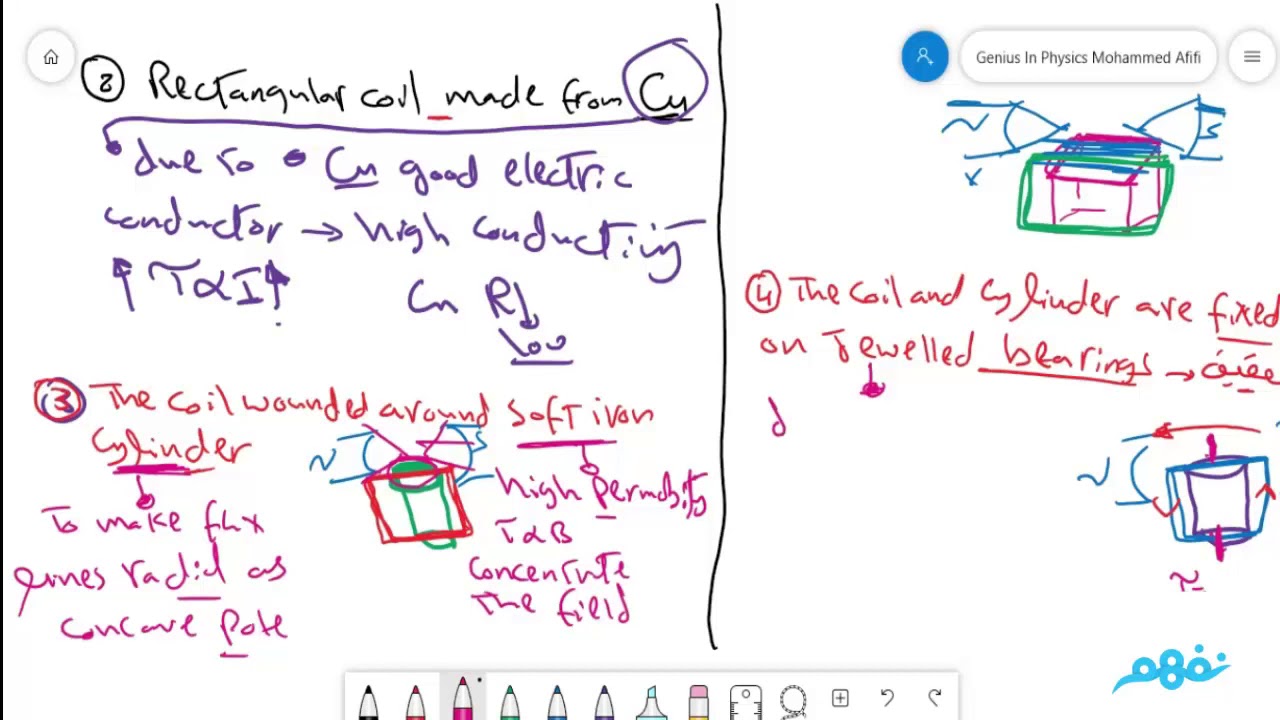 ② Rectangular coil made from Cu
due to • Cu good electric
conductor → high conductivity
↑ τ α I ↑ Cu R↓
low
③ The coil wounded around soft iron
cylinder
N S
To make flux
lines radial as
concave pole
high permability
τ α B
concentrate
the field
Genius In Physics Mohammed Afifi
N S
④ The coil and cylinder are fixed
on Jewelled bearings →
d
N
نفهم